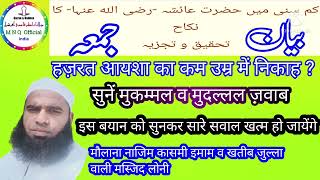 کم سنی میں حضرت عائشہ -رضی الله عنہا- کا
نکاح
تحقیق و تجزیہ
بیان
جمعہ
M N Q Official
India
हज़रत आयशा का कम उम्र में निकाह ?
सुनें मुकम्मल व मुदल्लल ज़वाब
इस बयान को सुनकर सारे सवाल खत्म हो जायेंगे
मौलाना नाजिम कासमी इमाम व खतीब जुल्ला
वाली मस्जिद लोनी